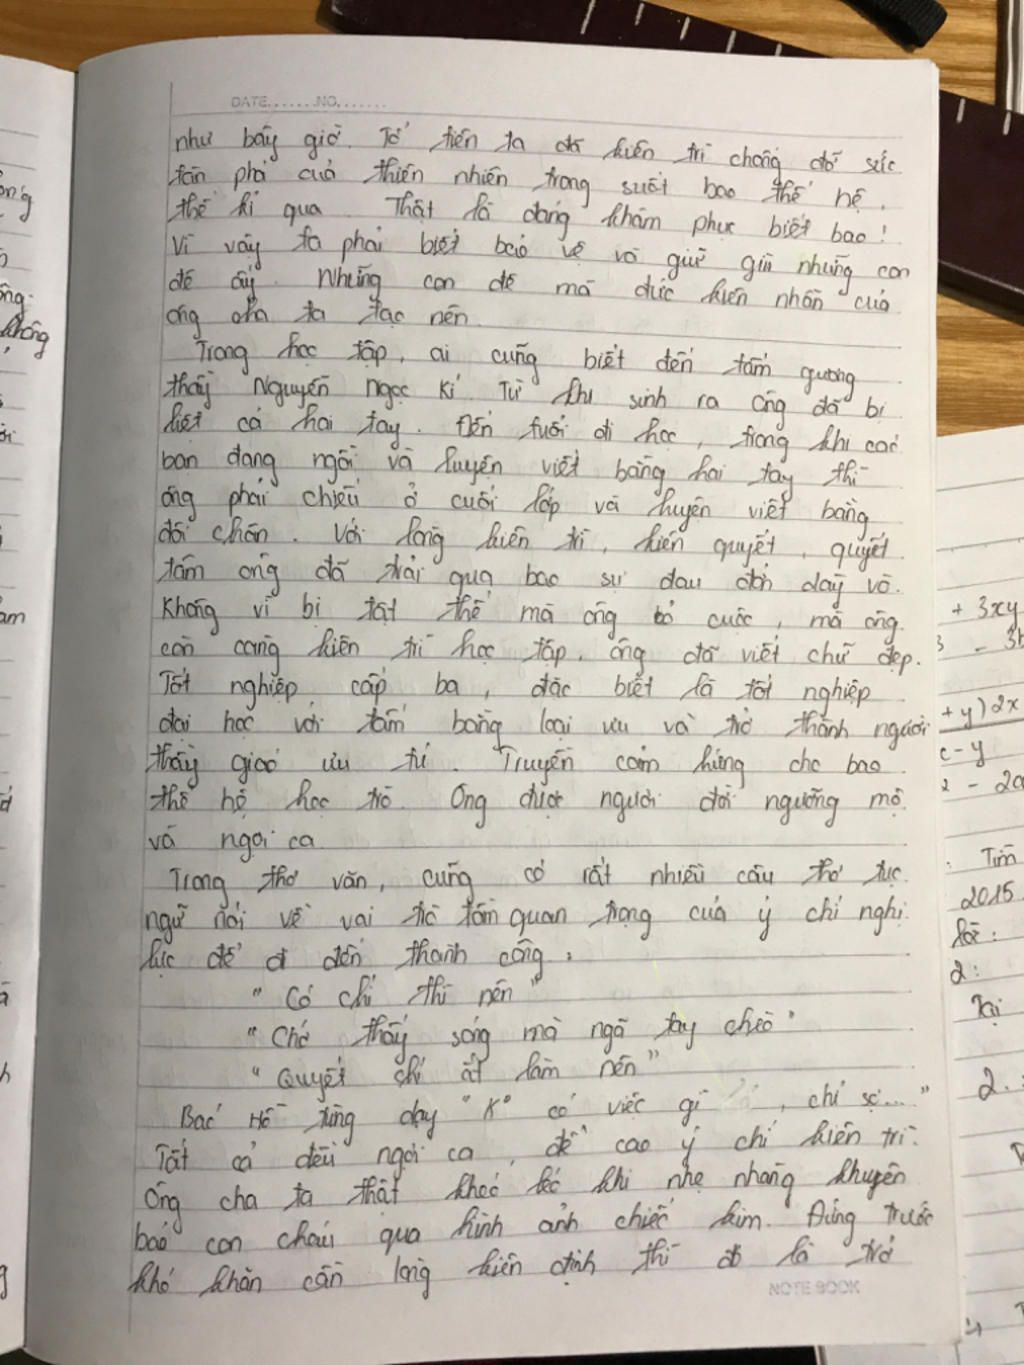 DATE.......NO.......
như bây giờ. Tổ tiên ta đã kiên trì chống đỡ sức
tàn phá của thiên nhiên trong suốt bao thế hệ.
thế kỉ qua. Thật là đáng khâm phục biết bao!
Vì vậy ta phải biết bảo vệ và giữ gìn những con
đê ấy. Những con đê mà đức kiên nhẫn của
ông cha ta tạc nên.
Trong học tập, ai cũng biết đến tấm gương
thầy Nguyễn Ngọc Kí. Từ khi sinh ra ông đã bị
liệt cả hai tay. Đến tuổi đi học, trong khi các
bạn đang ngồi và luyện viết bằng hai tay thì
ông phải chiếu ở cuối lớp và luyện viết bằng
đôi chân. Với lòng kiên trì, kiên quyết, quyết
tâm ông đã trải qua bao sự đau đớn dày vò.
Không vì bị tật thế mà ông bỏ cuộc, mà ông
còn càng kiên trì học tập. ông đã viết chữ đẹp.
Tốt nghiệp cấp ba, đặc biệt là tốt nghiệp
đại học với tấm bằng loại ưu và trở thành người
thầy giáo ưu tú. Truyền cảm hứng cho bao
thế hệ học trò. Ông được người đời ngưỡng mộ
và ngợi ca
Trong thơ văn, cũng có rất nhiều câu thơ tục
ngữ nói về vai trò tầm quan trọng của ý chí nghị
lực để đi đến thành công:
"Có chí thì nên"
"Chớ thấy sóng mà ngã tay chèo"
"Quyết chí ắt làm nên"
Bác Hồ từng dạy "Ko có việc gì , chỉ sợ..."
Tất cả đều ngợi ca, đề cao ý chí kiên trì.
Ông cha ta thật khéo léo khi nhẹ nhàng khuyên
bảo con cháu qua hình ảnh chiếc kim. Đứng trước
khó khăn cần lòng kiên định thì đó là trở
NOTE BOOK
+ 3xy
+ y) 2x
x - y
Tìm
2015
2:
Tại
2.